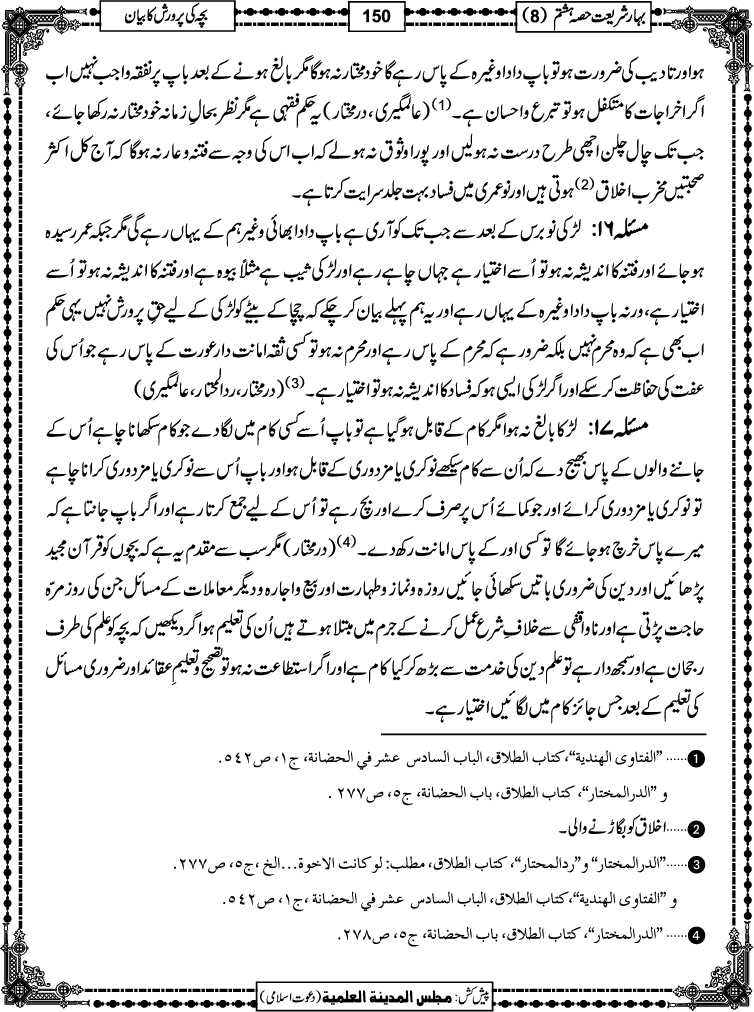 بہارِ شریعت حصہ ہشتم (8)
150
بچہ کی پرورش کا بیان
ہو اور تادیب کی ضرورت ہو تو باپ دادا وغیرہ کے پاس رہے گا خود مختار نہ ہوگا مگر بالغ ہونے کے بعد باپ پر نفقہ واجب نہیں اب
اگر اخراجات کا متکفل ہو تو تبرع و احسان ہے۔(1) (عالمگیری، درمختار) یہ حکم فقہی ہے مگر نظر بحالِ زمانہ خود مختار نہ رکھا جائے،
جب تک چال چلن اچھی طرح درست نہ ہولیں اور پورا وثوق نہ ہولے کہ اب اس کی وجہ سے فتنہ و عار نہ ہوگا کہ آج کل اکثر
صحبتیں مخرب اخلاق(2) ہوتی ہیں اور نوعمری میں فساد بہت جلد سرایت کرتا ہے۔
مسئلہ ۱۶: لڑکی نو برس کے بعد سے جب تک کوآری ہے باپ دادا بھائی وغیرہم کے یہاں رہے گی مگر جبکہ عمر رسیدہ
ہوجائے اور فتنہ کا اندیشہ نہ ہو تو اُسے اختیار ہے جہاں چاہے رہے اور لڑکی ثیب ہے مثلاً بیوہ ہے اور فتنہ کا اندیشہ نہ ہو تو اُسے
اختیار ہے، ورنہ باپ دادا وغیرہ کے یہاں رہے اور یہ ہم پہلے بیان کرچکے کہ چچا کے بیٹے کو لڑکی کے لیے حقِ پرورش نہیں یہی حکم
اب بھی ہے کہ وہ محرم نہیں بلکہ ضرور ہے کہ محرم کے پاس رہے اور محرم نہ ہو تو کسی ثقہ امانت دار عورت کے پاس رہے جو اُس کی
عفت کی حفاظت کرسکے اور اگر لڑکی ایسی ہو کہ فساد کا اندیشہ نہ ہو تو اختیار ہے۔(3) (درمختار، ردالمحتار، عالمگیری)
مسئلہ ۱۷: لڑکا بالغ نہ ہوا مگر کام کے قابل ہوگیا ہے تو باپ اُسے کسی کام میں لگادے جو کام سکھانا چاہے اُس کے
جاننے والوں کے پاس بھیج دے کہ اُن سے کام سیکھے نوکری یا مزدوری کے قابل ہو اور باپ اُس سے نوکری یا مزدوری کرانا چاہے
تو نوکری یا مزدوری کرائے اور جو کمائے اُس پر صرف کرے اور بچ رہے تو اُس کے لیے جمع کرتا رہے اور اگر باپ جانتا ہے کہ
میرے پاس خرچ ہوجائے گا تو کسی اور کے پاس امانت رکھ دے۔(4) (درمختار) مگر سب سے مقدم یہ ہے کہ بچوں کو قرآن مجید
پڑھائیں اور دین کی ضروری باتیں سکھائی جائیں روزہ و نماز و طہارت اور بیع و اجارہ و دیگر معاملات کے مسائل جن کی روز مرّہ
حاجت پڑتی ہے اور ناواقفی سے خلافِ شرع عمل کرنے کے جرم میں مبتلا ہوتے ہیں اُن کی تعلیم ہو اگر دیکھیں کہ بچہ کو علم کی طرف
رجحان ہے اور سمجھ دار ہے تو علم دین کی خدمت سے بڑھ کر کیا کام ہے اور اگر استطاعت نہ ہو تو تصحیح و تعلیمِ عقائد اور ضروری مسائل
کی تعلیم کے بعد جس جائز کام میں لگائیں اختیار ہے۔
1 ...... ”الفتاوی الھندیة“،کتاب الطلاق، الباب السادس عشر في الحضانة، ج١، ص٥٤٢.
و ”الدرالمختار“، کتاب الطلاق، باب الحضانة، ج٥، ص٢٧٧ .
2 ......اخلاق کو بگاڑنے والی۔
3 ......”الدرالمختار“ و”ردالمحتار“، کتاب الطلاق، مطلب: لو کانت الاخوة...الخ ،ج٥، ص٢٧٧.
و ”الفتاوی الھندیة“،کتاب الطلاق، الباب السادس عشر في الحضانة ،ج١، ص٥٤٢.
4 ...... ”الدرالمختار“، کتاب الطلاق، باب الحضانة، ج٥، ص٢٧٨.
پیش کش: مجلس المدینة العلمیة (دعوت اسلامی)